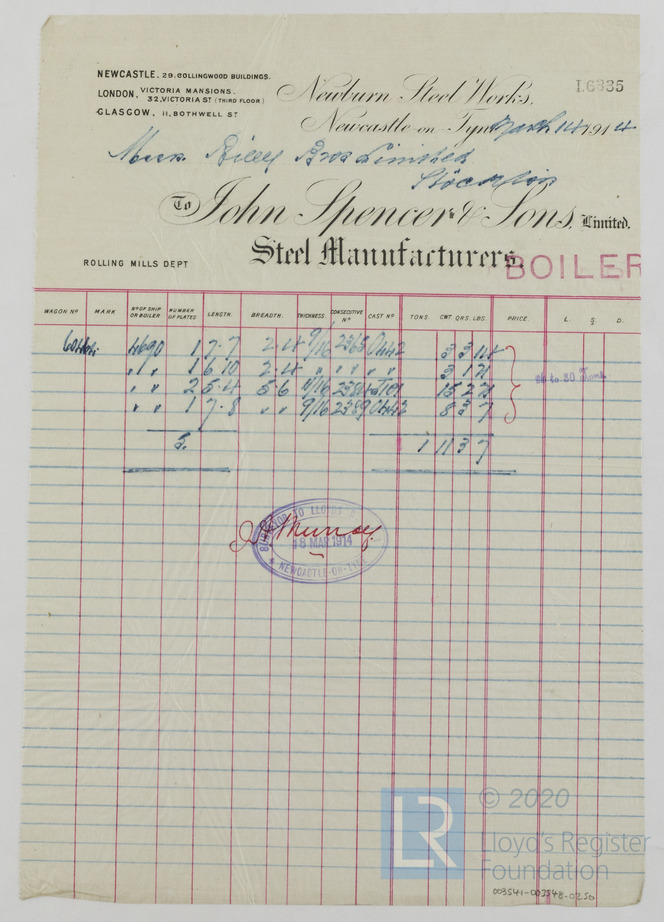 NEWCASTLE. 29. COLLINGWOOD BUILDINGS.
LONDON. VICTORIA MANSIONS.
32, VICTORIA ST (THIRD FLOOR)
GLASGOW, 11, BOTHWELL ST
Newburn Steel Works,
I.6335
Newcastle-on-Tyne March 14 1914
Messrs. Riley Bros Limited
Stockton
To John Spencer & Sons, Limited.
Steel Manufacturers.
ROLLING MILLS DEPT
BOILER
WAGON No MARK No OF SHIP OR BOILER NUMBER OF PLATES LENGTH. BREADTH. THICKNESS. CONSECUTIVE No CAST No TONS. CWT. QRS. LBS. PRICE. L. S. D.
4690 1 7.7 2.4 9/16 3 3 14
" " 1 6.10 2.4 " " " " " 3 1 21
" " 2 5.4 5 6 11/16 15 2 21
" " 1 7.8 " " 9/16 8 3 7
5. 1 11 3 7
26 to 30 Tons
SURVEYOR TO LLOYD'S
18 MAR 1914
NEWCASTLE-ON-TYNE
Murray
LR
© 2020
Lloyd's Register
Foundation
003541-003548-0250